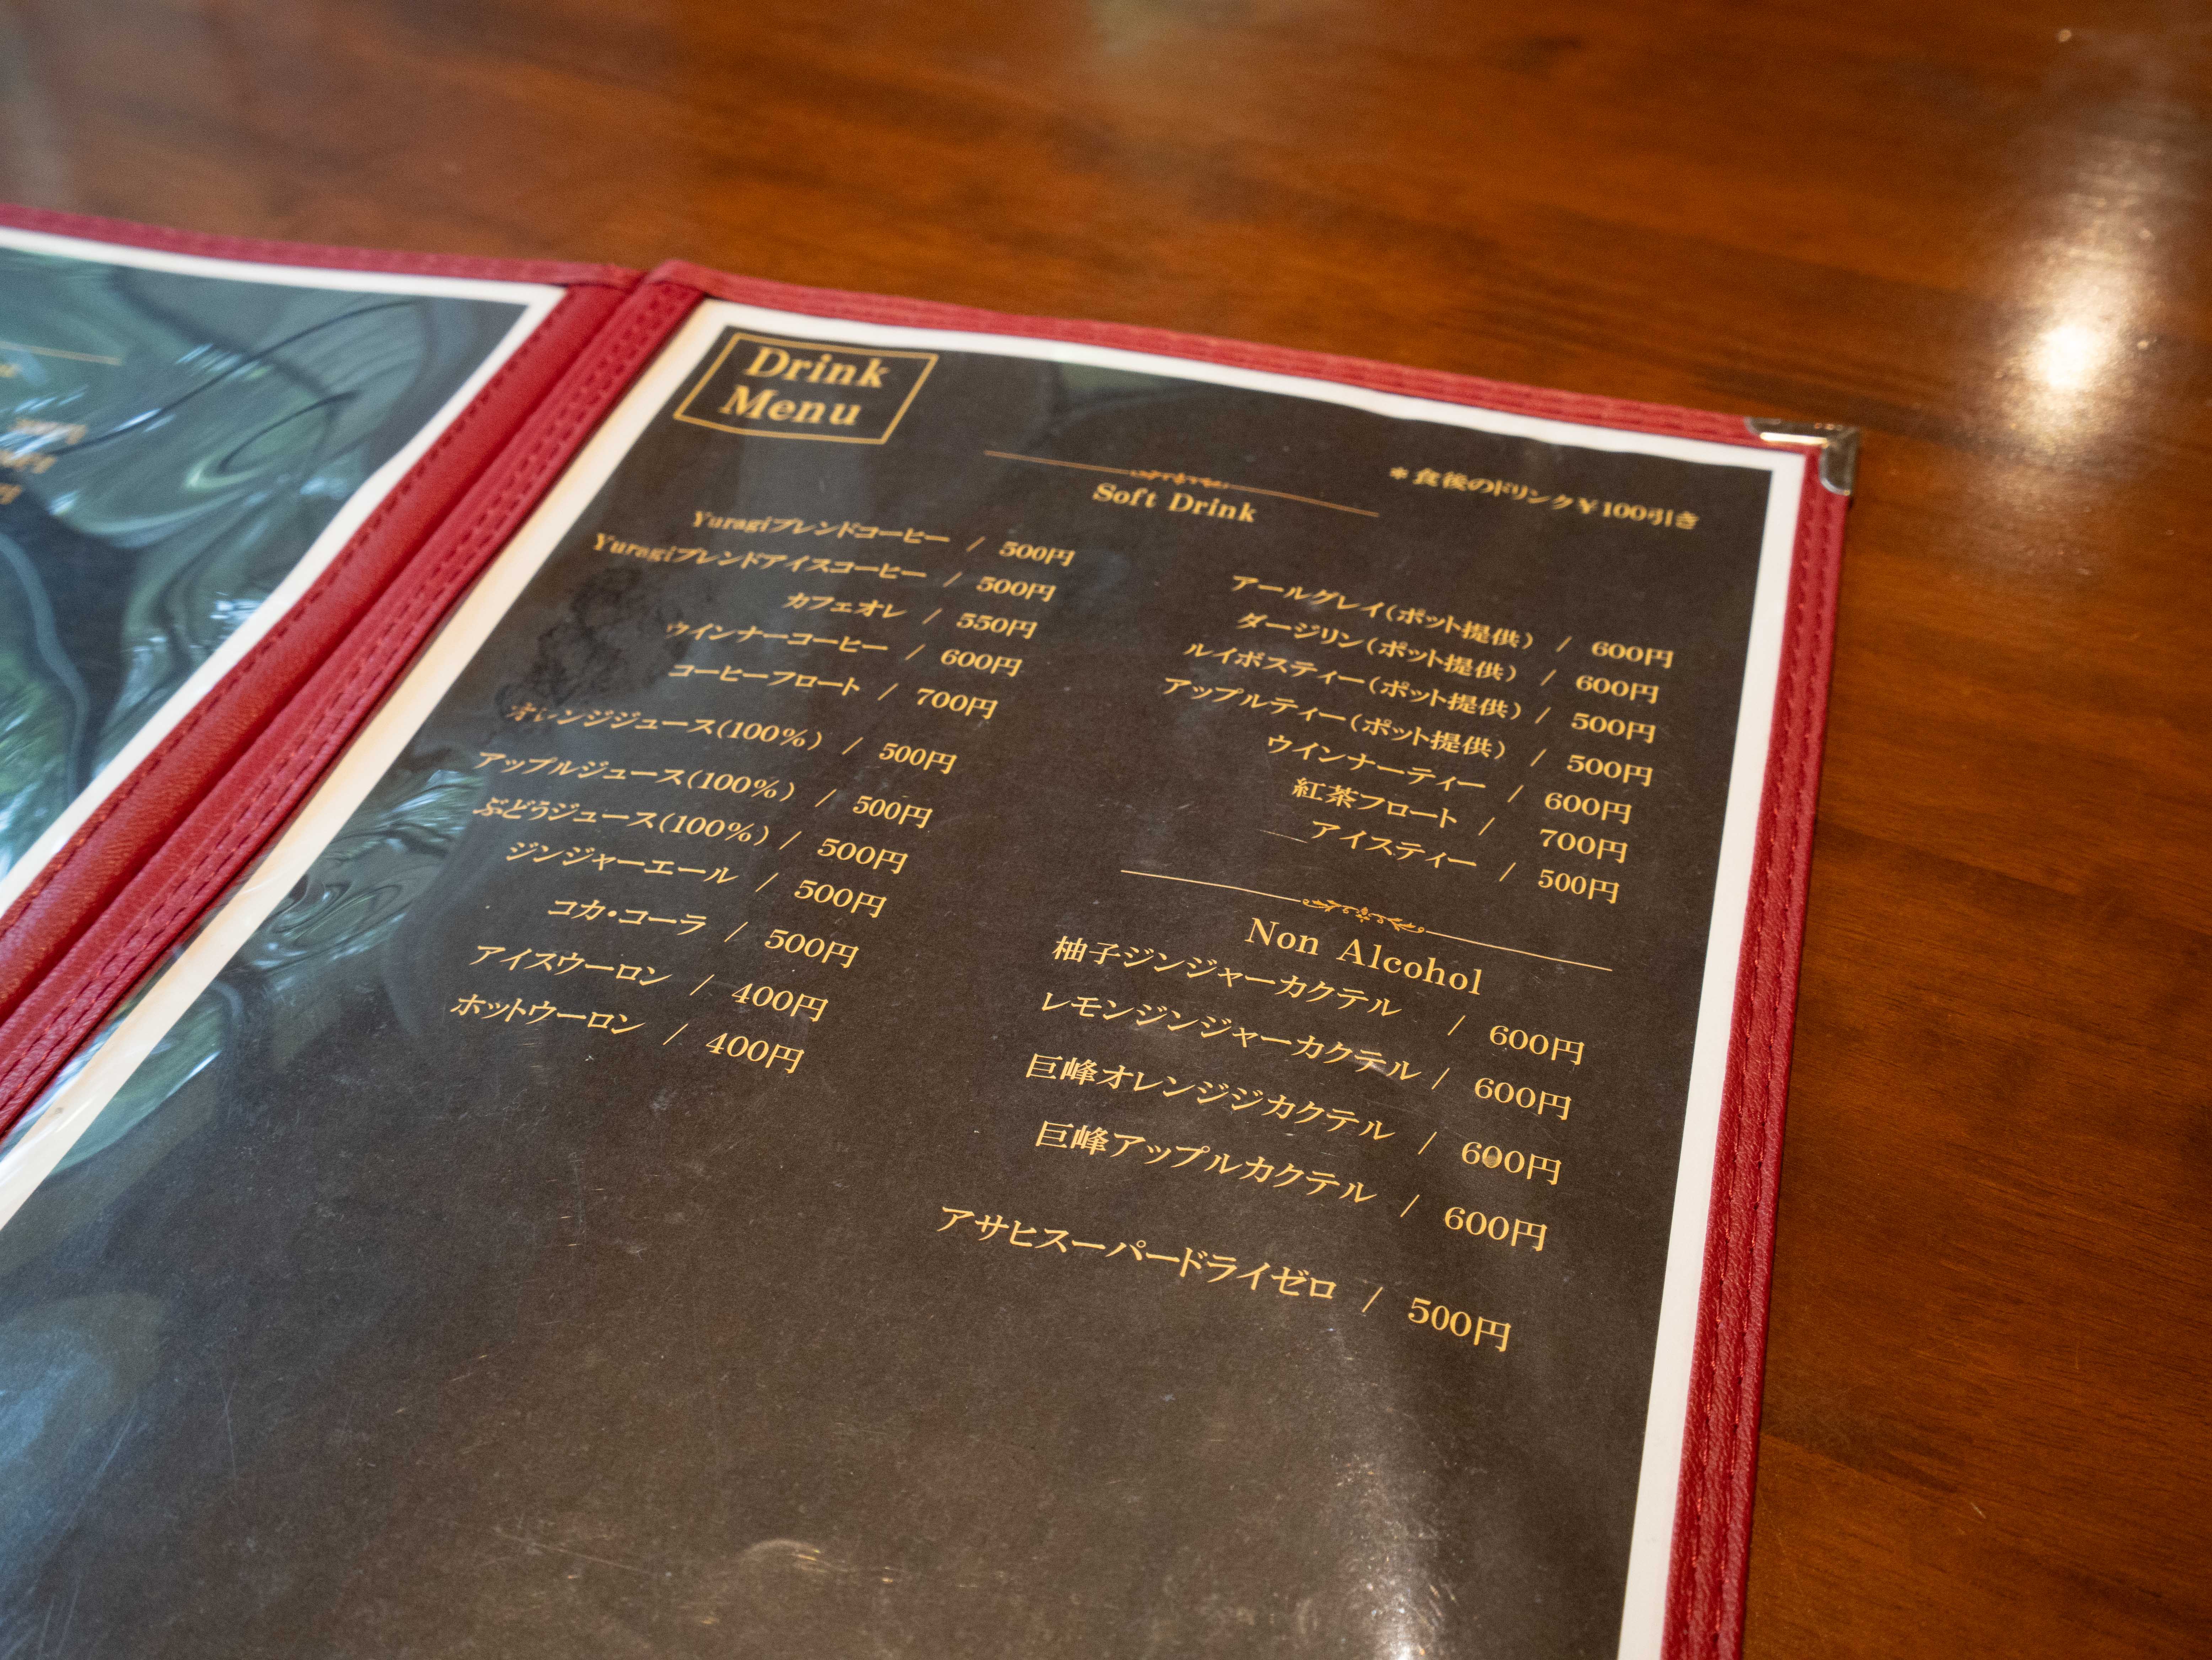 Drink
Menu
Soft Drink
＊食後のドリンク￥100引き
Yuragiブレンドコーヒー / 500円
Yuragiブレンドアイスコーヒー / 500円
カフェオレ / 550円
ウインナーコーヒー / 600円
コーヒーフロート / 700円
オレンジジュース(100%) / 500円
アップルジュース(100%) / 500円
ぶどうジュース(100%) / 500円
ジンジャーエール / 500円
コカ・コーラ / 500円
アイスウーロン / 400円
ホットウーロン / 400円
アールグレイ(ポット提供) / 600円
ダージリン(ポット提供) / 600円
ルイボスティー(ポット提供) / 500円
アップルティー(ポット提供) / 500円
ウインナーティー / 600円
紅茶フロート / 700円
アイスティー / 500円
Non Alcohol
柚子ジンジャーカクテル / 600円
レモンジンジャーカクテル / 600円
巨峰オレンジジカクテル / 600円
巨峰アップルカクテル / 600円
アサヒスーパードライゼロ / 500円